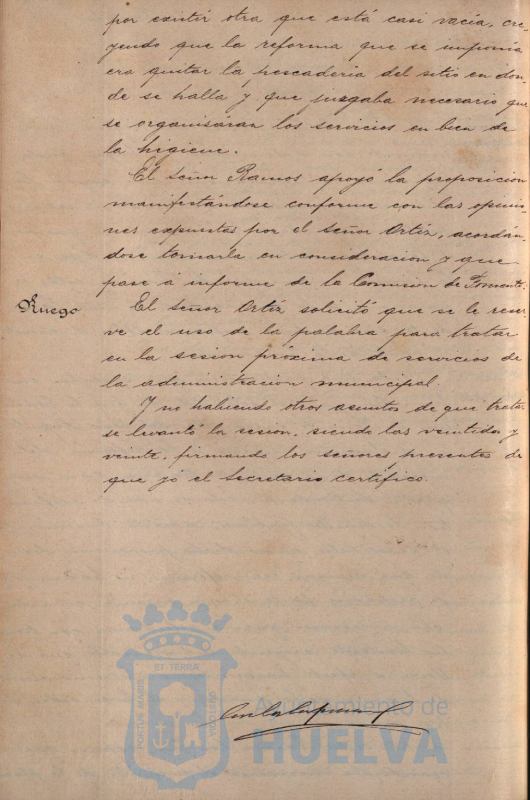 por existir otra que está casi vacía, cre-
yendo que la reforma que se imponía
era quitar la pescadería del sitio en don-
de se halla y que juzgaba necesario que
se organisáran los servicios en bien de
la higiene.
El Señor Ramos apoyó la proposición
manifestándose conforme con las opinio-
nes expuestas por el Señor Ortíz, acordán-
dose tomarla en consideracion y que
pase á informe de la Comision de Fomento.
Ruego
El Señor Ortíz solicitó que se le reser-
ve el uso de la palabra para tratar
en la sesion próxima de servicios de
la administracion municipal.
Y no habiendo otros asuntos de que tratar
se levantó la sesion, siendo las veintidos y
veinte, firmando los señores presentes de
que yó el Secretario certifico.
PORTUS MARIS ET TERRÆ CUSTODIA
Ayuntamiento de
HUELVA